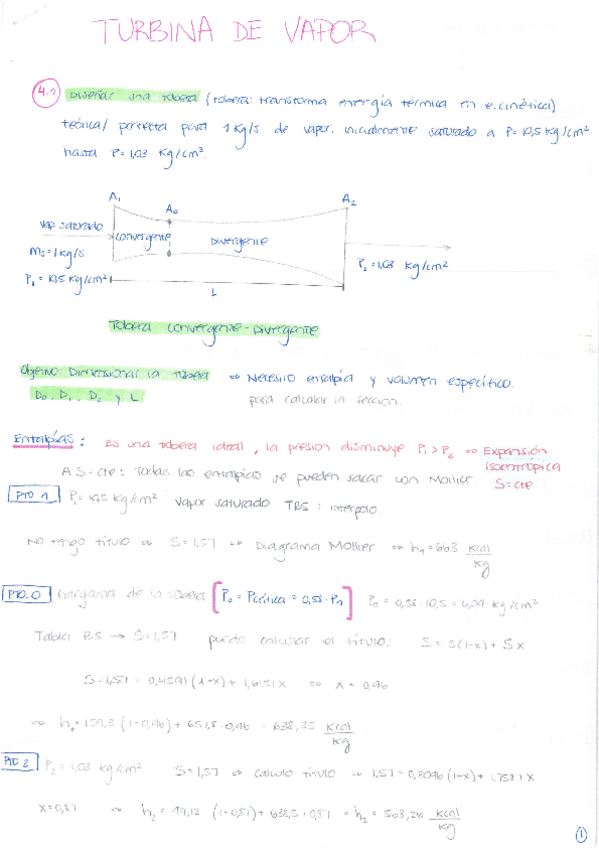 TURBINA DE VAPOR
4.1 Diseñar una tobera (tobera: transforma energía térmica en e. cinética)
teórica/ perfecta para 1 Kg/s de vapor. inicialmente saturado a P=10,5 Kg/cm²
hasta P=1,03 Kg/cm².
A₁ A₀ A₂
vap saturado
convergente Divergente
ṁs=1 kg/s
P₂=1,03 Kg/cm²
P₁ = 10,5 Kg/cm²
Tobera convergente-Divergente
Objetivo Dimensionar la tobera ⇒ Necesito entalpía y volumen específico.
D₀, D₁, D₂ y L para calcular la sección.
Entalpías: Es una tobera ideal, la presión disminuye P₁>P₂ ⇒ Expansión
isoentrópica
A S=cte: Todas las entalpías se pueden sacar con Mollier. S=cte
PTO 1 P₁= 10,5 Kg/cm² vapor saturado TBS: interpolo.
No tengo título ⇒ S=1,57 ⇒ Diagrama Mollier ⇒ h₁=663 Kcal/Kg
PTO.0 Garganta de la tobera [P₀=Pcrítica=0,58·P₁] P₀=0,58·10,5=6,09 Kg/cm²
Tabla BS → S=1,57 puedo calcular el título: S=S(1-x)+Sx
S=1,57=0,4591(1-x)+1,6151x ⇒ x=0,96
⇒ h₀=159,3(1-0,96)+658,8·0,96=638,35 Kcal/Kg
PTO 2 P₂=1,03 Kg/cm² S=1,57 ⇒ calculo título ⇒ 1,57=0,3096(1-x)+1,7587x
x=0,87 ⇒ h₂=99,12(1-0,87)+638,5·0,87=h₂=568,26 Kcal/Kg
1